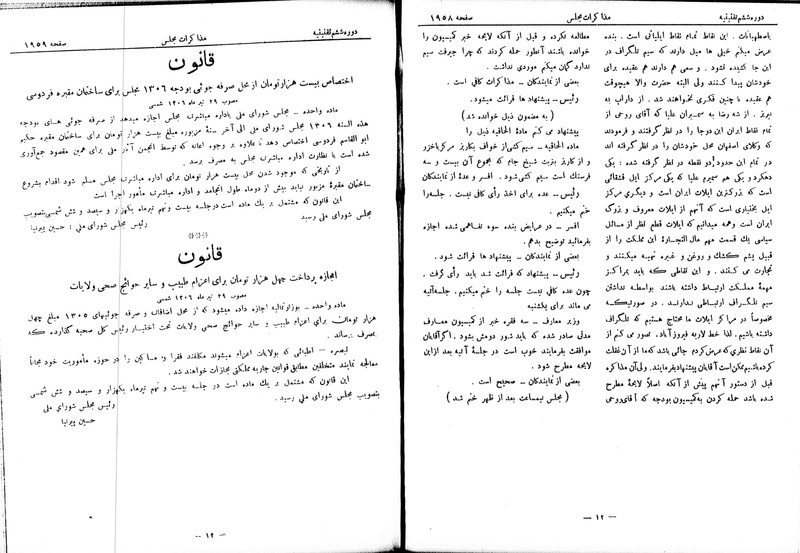 دوره ششم تقنینیه
مذاکرات مجلس
صفحه ۱۹۵۸
باصطهبانات . این نقاط تمام نقاط ایلیاتی است . بنده
عرض میکنم خیلی ها میل دارند که سیم تلگراف در
این جا کشیده نشود . و سعی هم دارند هم عقیده برای
خودشان پیدا کنند ولی البته حضرت والا هیچوقت
هم عقیده با چنین فکری نخواهند شد . از داراب به
نیریز . از شه رضا به سمیران علیا که آقای روحی از
تمام نقاط ایران این دو جا را در نظر گرفتند و فرمودند
که وکلای اصفهان محل خودشان را در نظر گرفته اند
در تمام این حدود دو نقطه در نظر گرفته شده : یکی
دهکرد و یکی هم سمیرم علیا که یکی مرکز ایل قشقائی
است که بزرگترین ایلات ایران است و دیگری مرکز
ایل بختیاری است که آنهم از ایلات معروف و بزرگ
ایران است وهمه میدانیم که ایلات قطع نظر از مسائل
سیاسی یک قسمت مهم مال التجارهٔ این مملکت را از
قبیل پشم کشک و روغن و غیره تهیه میکنند و
تجارت می کنند . و این نقاطی که باید بمراکز
مهمهٔ مملکت ارتباط داشته باشند بواسطه نداشتن
سیم تلگراف ارتباطی ندارند . در صورتیکه
مخصوصاً در مراکز ایلات ما محتاج هستیم که تلگراف
داشته باشیم . لذا خط لار به فیروز آباد . تصور می کنم از
آن نقاط نظری که عرض کردم جائی باشد که ما از آن غفلت
کرده باشیم ممکن است آقایان پیشنهاد بفرمایند. ولی آن مذاکره
قبل از دستور آنهم پیش از آنکه اصلاً لایحه مطرح
شده باشد حمله کردن به کمیسیون بودجه که آقای روحی
مطالعه نکرده و قبل از آنکه لایحه خبر کمیسیون را
خوانده باشند آنطور حمله کردند که چرا جیرفت سیم
ندارد گمان میکنم موردی نداشت .
بعضی از نمایندکان ـ مذاکرات کافی است .
رئیس ـ پیشنهاد ها قرائت میشود .
( به مضمون ذیل خوانده شد )
پیشنهاد می کنم مادهٔ الحاقیه ذیل را
ماده الحاقیه ـ سیم کشی از خواف بکاریز مرکز باخرز
و از کاریز بتربت شیخ جام که مجموع آن بیست و سه
فرسنک است سیم کشی شود . افسر و عدهٔ از نمایندکان
رئیس ـ عده برای اخذ رأی کافی نیست . جلسه را
ختم میکنیم .
افسر ـ در عرایض بنده سوء تفاهمی شده اجازه
بفرمائید توضیح بدهم .
بعضی از نمایندکان ـ پیشنهاد ها قرائت شود .
رئیس ـ پیشنهاد که قرائت شد باید رأی گرفت .
چون عده کافی نیست جلسه را ختم میکنیم . جلسه آتیه
می ماند برای یکشنبه
وزیر معارف ـ سه فقره خبر از کمیسیون معارف
مدتی صادر شده که باید شور دومش بشود . اگر آقایان
موافقت بفرمایند خوب است در جلسهٔ آتیه بعد از این
لایحه مطرح شود .
بعضی از نمایندکان ـ صحیح است .
( مجلس نیمساعت بعد از ظهر ختم شد )
ـ ۱۲ ـ
دوره ششم تقنینیه
مذاکرات مجلس
صفحه ۱۹۵۹
قانون
اختصاص بیست هزار تومان از محل صرفه جوئی بودجه ۱۳۰۶ مجلس برای ساختمان مقبره فردوسی
مصوب ۲۹ تیر ماه ۱۳۰۶ شمسی
ماده واحده ـ مجلس شورای ملی باداره مباشرت مجلس اجازه میدهد از صرفه جوئی های بودجه
هذه السنه ۱۳۰۶ مجلس شورای ملی الی آخر سنهٔ مزبوره مبلغ بیست هزار تومان برای ساختمان مقبره حکیم
ابو القاسم فردوسی اختصاص دهد تا علاوه بر وجوه اعانه که توسط انجمن آثار ملی برای همین مقصود جمع‌آوری
شده است با نظارت اداره مباشرت مجلس به مصرف برسد .
از تاریخی که موجود شدن محل بیست هزار تومان برای اداره مباشرت مجلس مسلم شود اقدام بشروع
ساختمان مقبرهٔ مزبور نباید بیش از دو ماه طول انجامد و اداره مباشرت مأمور اجرا است
این قانون که مشتمل بر یک ماده است در جلسه بیست و نهم تیرماه یکهزار و سیصد و شش شمسی بتصویب
مجلس شورای ملی رسید
رئیس مجلس شورای ملی : حسین پیرنیا
قانون
اجازه پرداخت چهل هزار تومان برای اعزام طبیب و سایر حوائج صحی ولایات
مصوب ۲۹ تیر ماه ۱۳۰۶ شمسی
ماده واحده ـ بوزارت مالیه اجازه داده میشود که از محل اضافات و صرفه جوئیهای ۱۳۰۵ مبلغ چهل
هزار تومان برای اعزام طبیب و سایر حوائج صحی ولایات تحت اختیار رئیس کل صحیه گذارده که
بمصرف برساند .
تبصره ـ اطبائی که بولایات اعزام میشوند مکلفند فقرا و مساکین را در حوزه مأموریت خود مجاناً
معالجه نمایند متخلفین مطابق قوانین جاریه مملکتی مجازات خواهند شد .
این قانون که مشتمل بر یک ماده است در جلسه بیست و نهم تیرماه یکهزار و سیصد و شش شمسی
بتصویب مجلس شورای ملی رسید .
رئیس مجلس شورای ملی
حسین پیرنیا
ـ ۱۳ ـ